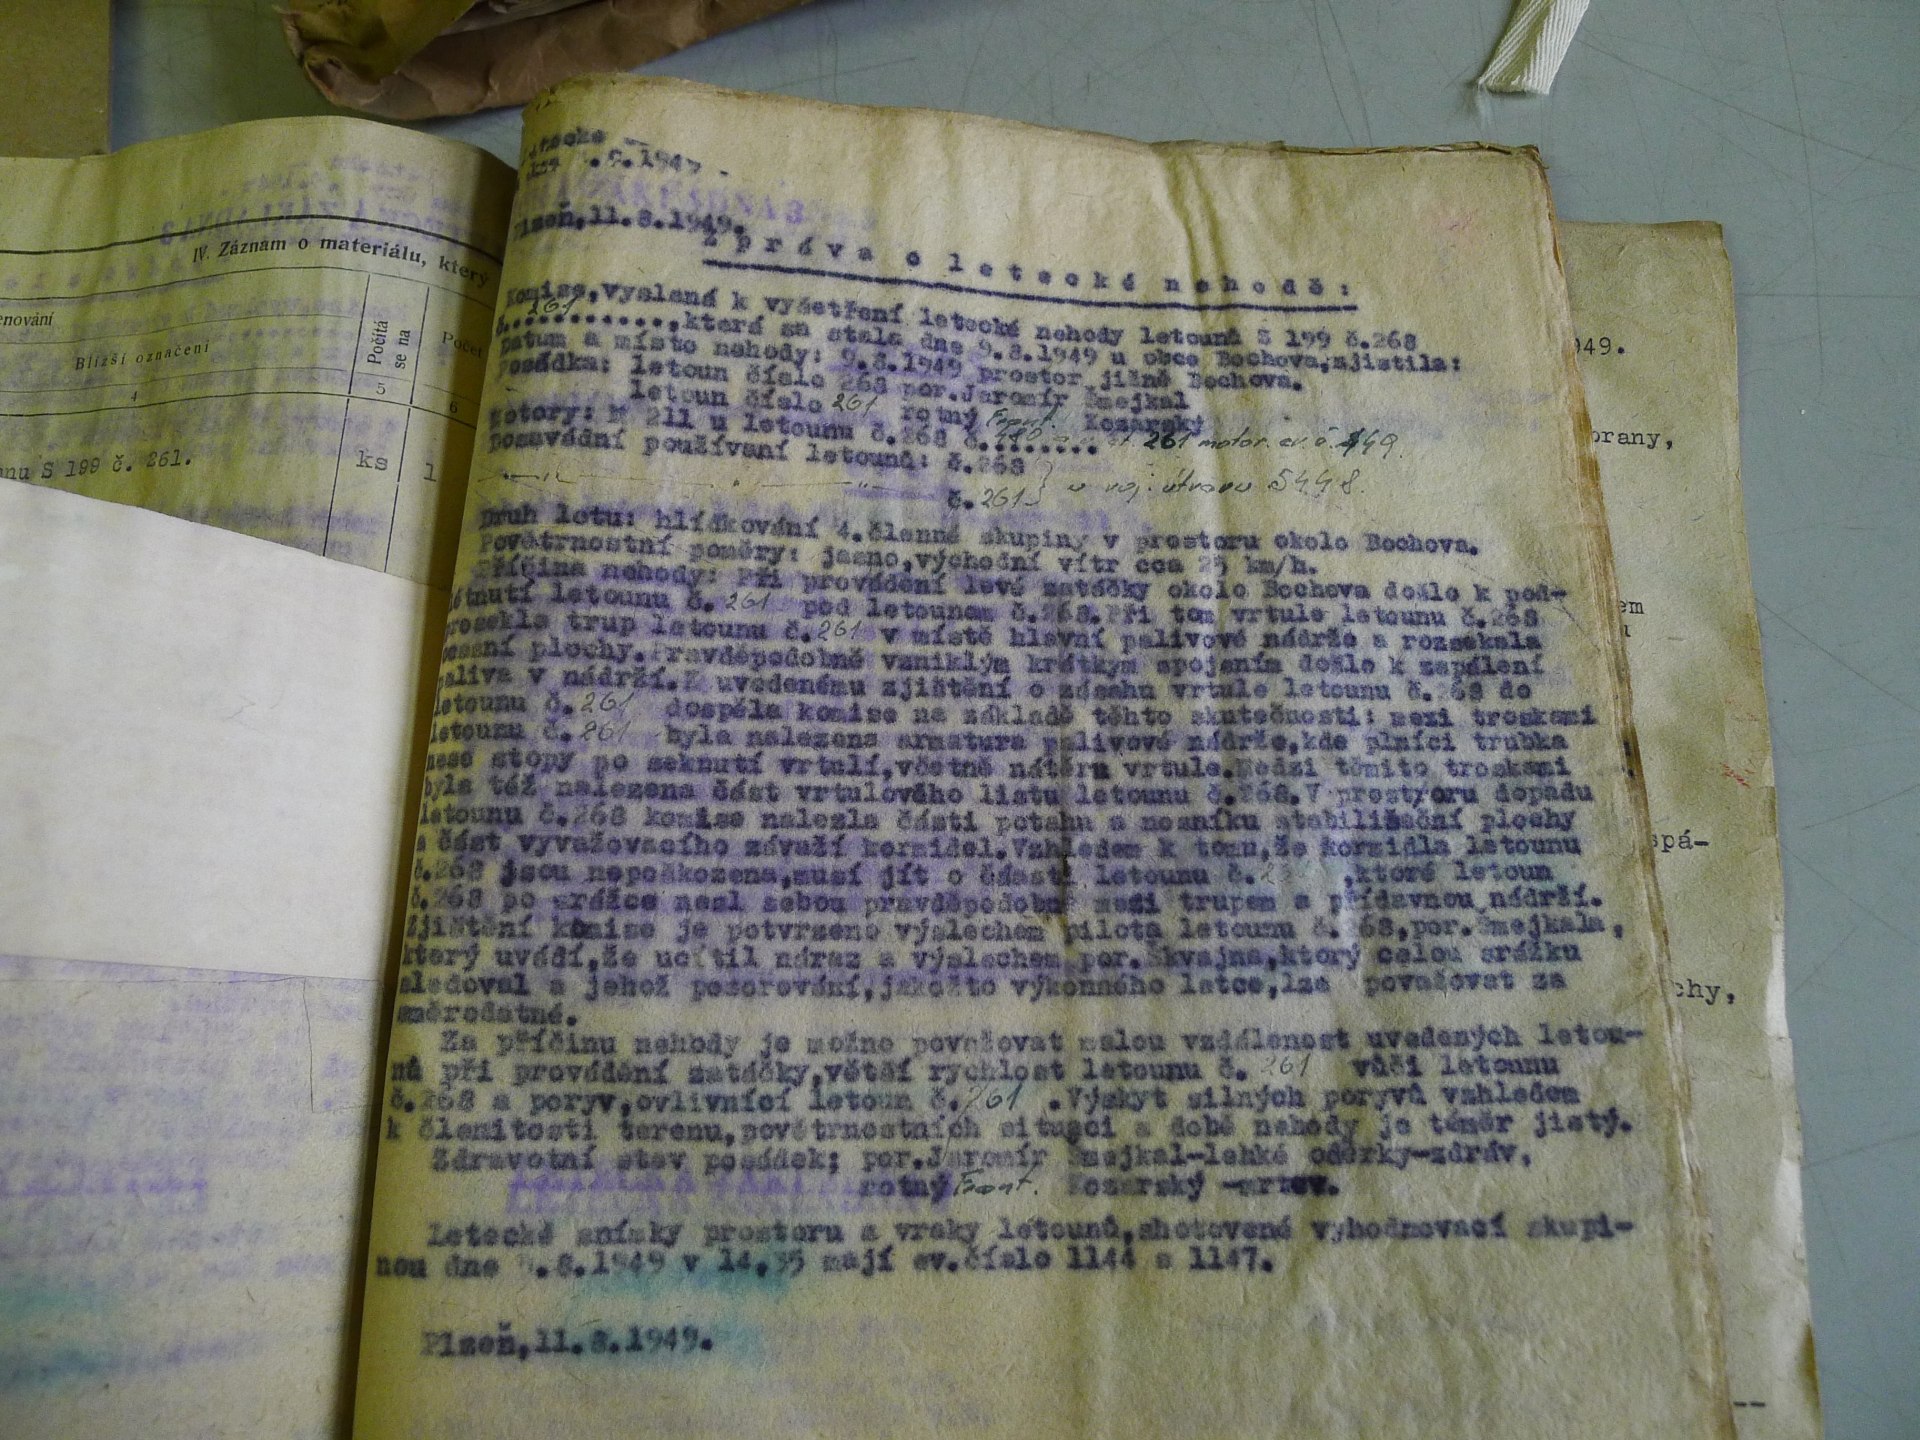 IV. Záznam o materiálu, který
enování
Bližší označení
Počítá
se na
Počet
4
5
6
nu S 199 č. 261.
ks
1
.1949
Plzeň,11.8.1949.
Zpráva o letecké nehodě:
Komise,vyslaná k vyšetření letecké nehody letounů S 199 č.268
č. 261 ............,která se stala dne 9.8.1949 u obce Bochova,zjistila:
Datum a místo nehody: 9.8.1949 prostor jižně Bochova.
Posádka: letoun číslo 268 por.Jaromír Šmejkal
letoun číslo 261 rotný Frant. Kozarský
Motory: M 211 u letounu č.268 č......... 261 motor. ev. č. 449.
Dosavádní používaní letounů: č.268
č.261 u voj. útvaru 5448.
Druh letu: hlídkování 4.členné skupiny v prostoru okolo Bochova.
Povětrnostní poměry: jasno,východní vítr cca 25 km/h.
Příčina nehody: Při provádění levé zatáčky okolo Bochova došlo k pod-
létnutí letounu č. 261 pod letounem č.268.Při tom vrtule letounu č.268
prosekla trup letounu č.261 v místě hlavní palivové nádrže a rozsekala
ocasní plochy.Pravděpodobně vzniklým krátkým spojením došlo k zapálení
paliva v nádrži.K uvedenému zjištění o zásahu vrtule letounu č.268 do
letounu č.261 dospěla komise na základě těhto skutečností: mezi troskami
letounu č.261 byla nalezena armatura palivové nádrže,kde plnící trubka
nese stopy po seknutí vrtulí,včetně nátěru vrtule.Medzi těmito troskami
byla též nalezena část vrtulového listu letounu č.268.V prost/oru dopadu
letounu č.268 komise nalezla části potahu a nosníku stabilisační plochy
a část vyvažovacího závaží kormidel.Vzhledem k tomu,že kormidla letounu
č.268 jsou nepoškozena,musí jít o části letounu č. ,které letoun
č.268 po srážce nesl sebou pravděpodobně mezi trupem a přídavnou nádrží.
Zjištění komise je potvrzeno výslechem pilota letounu č.268,por.Šmejkala,
který uvádí,že ucítil náraz a výslechem por.Škvajna,který celou srážku
sledoval a jehož pozorování,jakožto výkonného letce,lze považovat za
směrodatné.
Za příčinu nehody je možno považovat malou vzdálenost uvedených letou-
nů při provádění zatáčky,větší rychlost letounu č. 261 vůči letounu
č.268 a poryv,ovlivnící letoun č.261 .Výskyt silných poryvů vzhledem
k členitosti terenu,povětrnostních situaci a době nehody je téměr jistý.
Zdravotní stav posádek; por.Jaromír Šmejkal-lehké oděrky-zdráv,
rotný Frant. Kozarský -mrtev.
Letecké snímky prostoru a vraky letounů,zhotovené vyhodnovací skupi-
nou dne .8.1949 v 14.35 mají ev.číslo 1144 a 1147.
Plzeň,11.8.1949.
949.
orany,
em
spá-
chy,
--